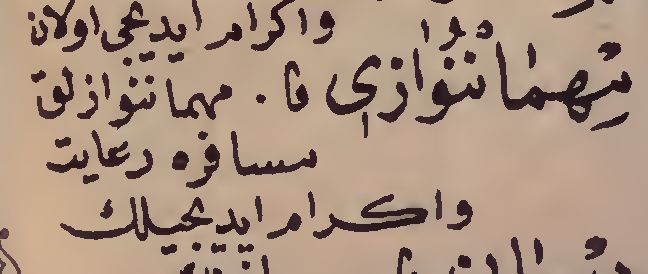 واكرام ايديجى اولان
مهماننوازى فا . مهماننوازلق
مسافره رعايت
واكرام ايديجيلك